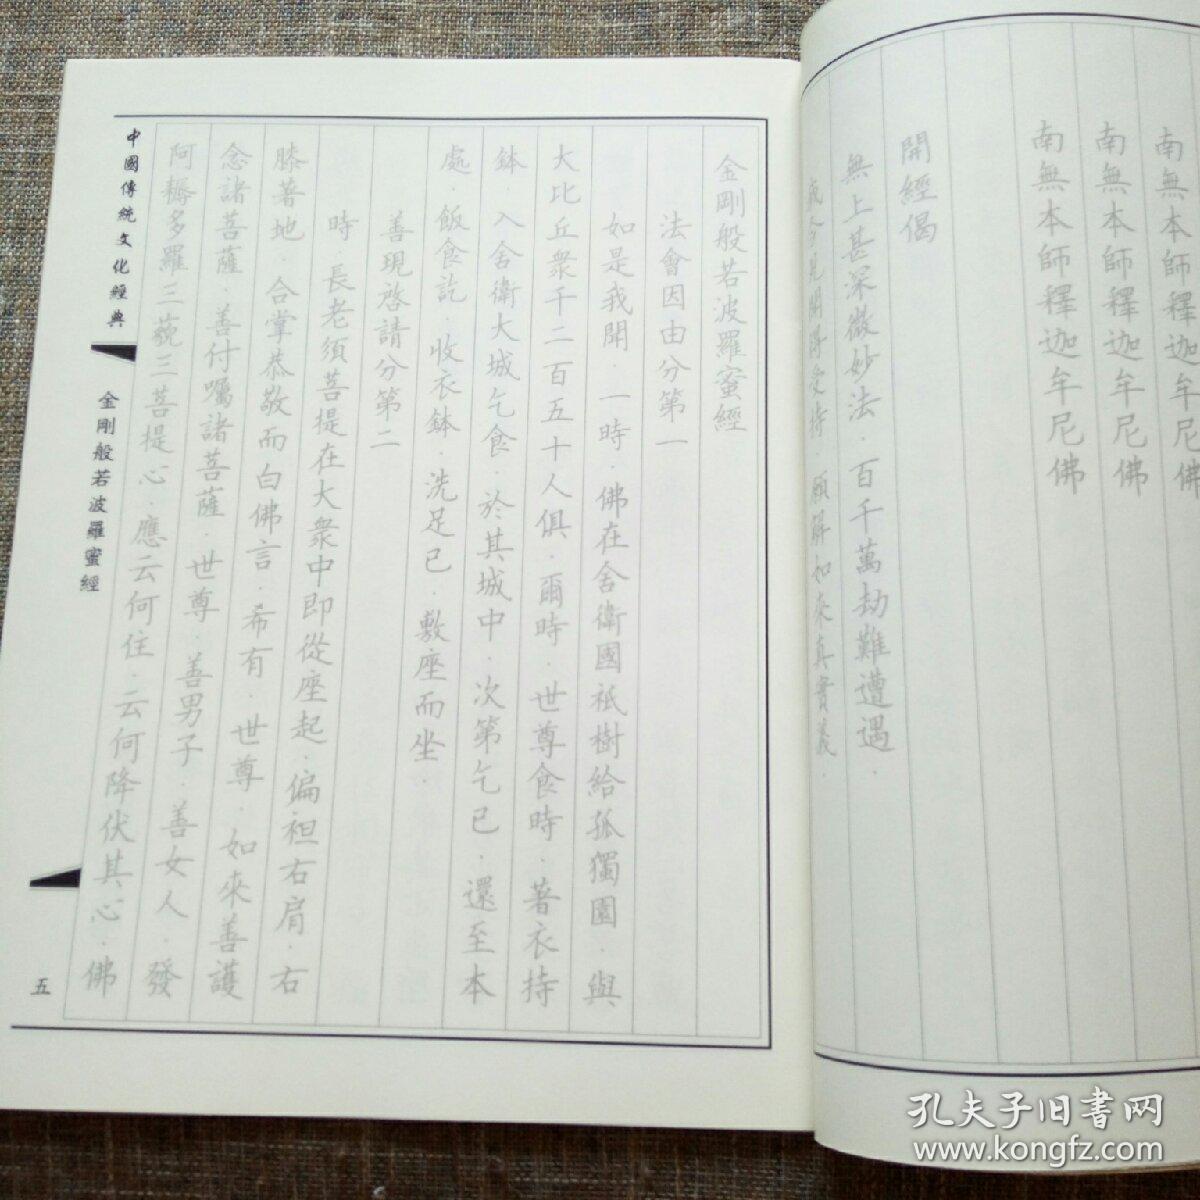 南無本師釋迦牟尼佛
南無本師釋迦牟尼佛
南無本師釋迦牟尼佛
開經偈
無上甚深微妙法．百千萬劫難遭遇．
我今見聞得受持．願解如來真實義
金剛般若波羅蜜經
法會因由分第一
如是我聞．一時．佛在舍衛國祇樹給孤獨園．與
大比丘衆千二百五十人俱．爾時．世尊食時．著衣持
鉢．入舍衛大城乞食．於其城中．次第乞已．還至本
處．飯食訖．收衣鉢．洗足已．敷座而坐．
善現啓請分第二
時．長老須菩提在大衆中即從座起．偏袒右肩．右
膝著地．合掌恭敬而白佛言．希有．世尊．如來善護
念諸菩薩．善付囑諸菩薩．世尊．善男子．善女人．發
阿耨多羅三藐三菩提心．應云何住．云何降伏其心．佛
中國傳統文化經典
金剛般若波羅蜜經
五
孔夫子旧書网
www.kongfz.com